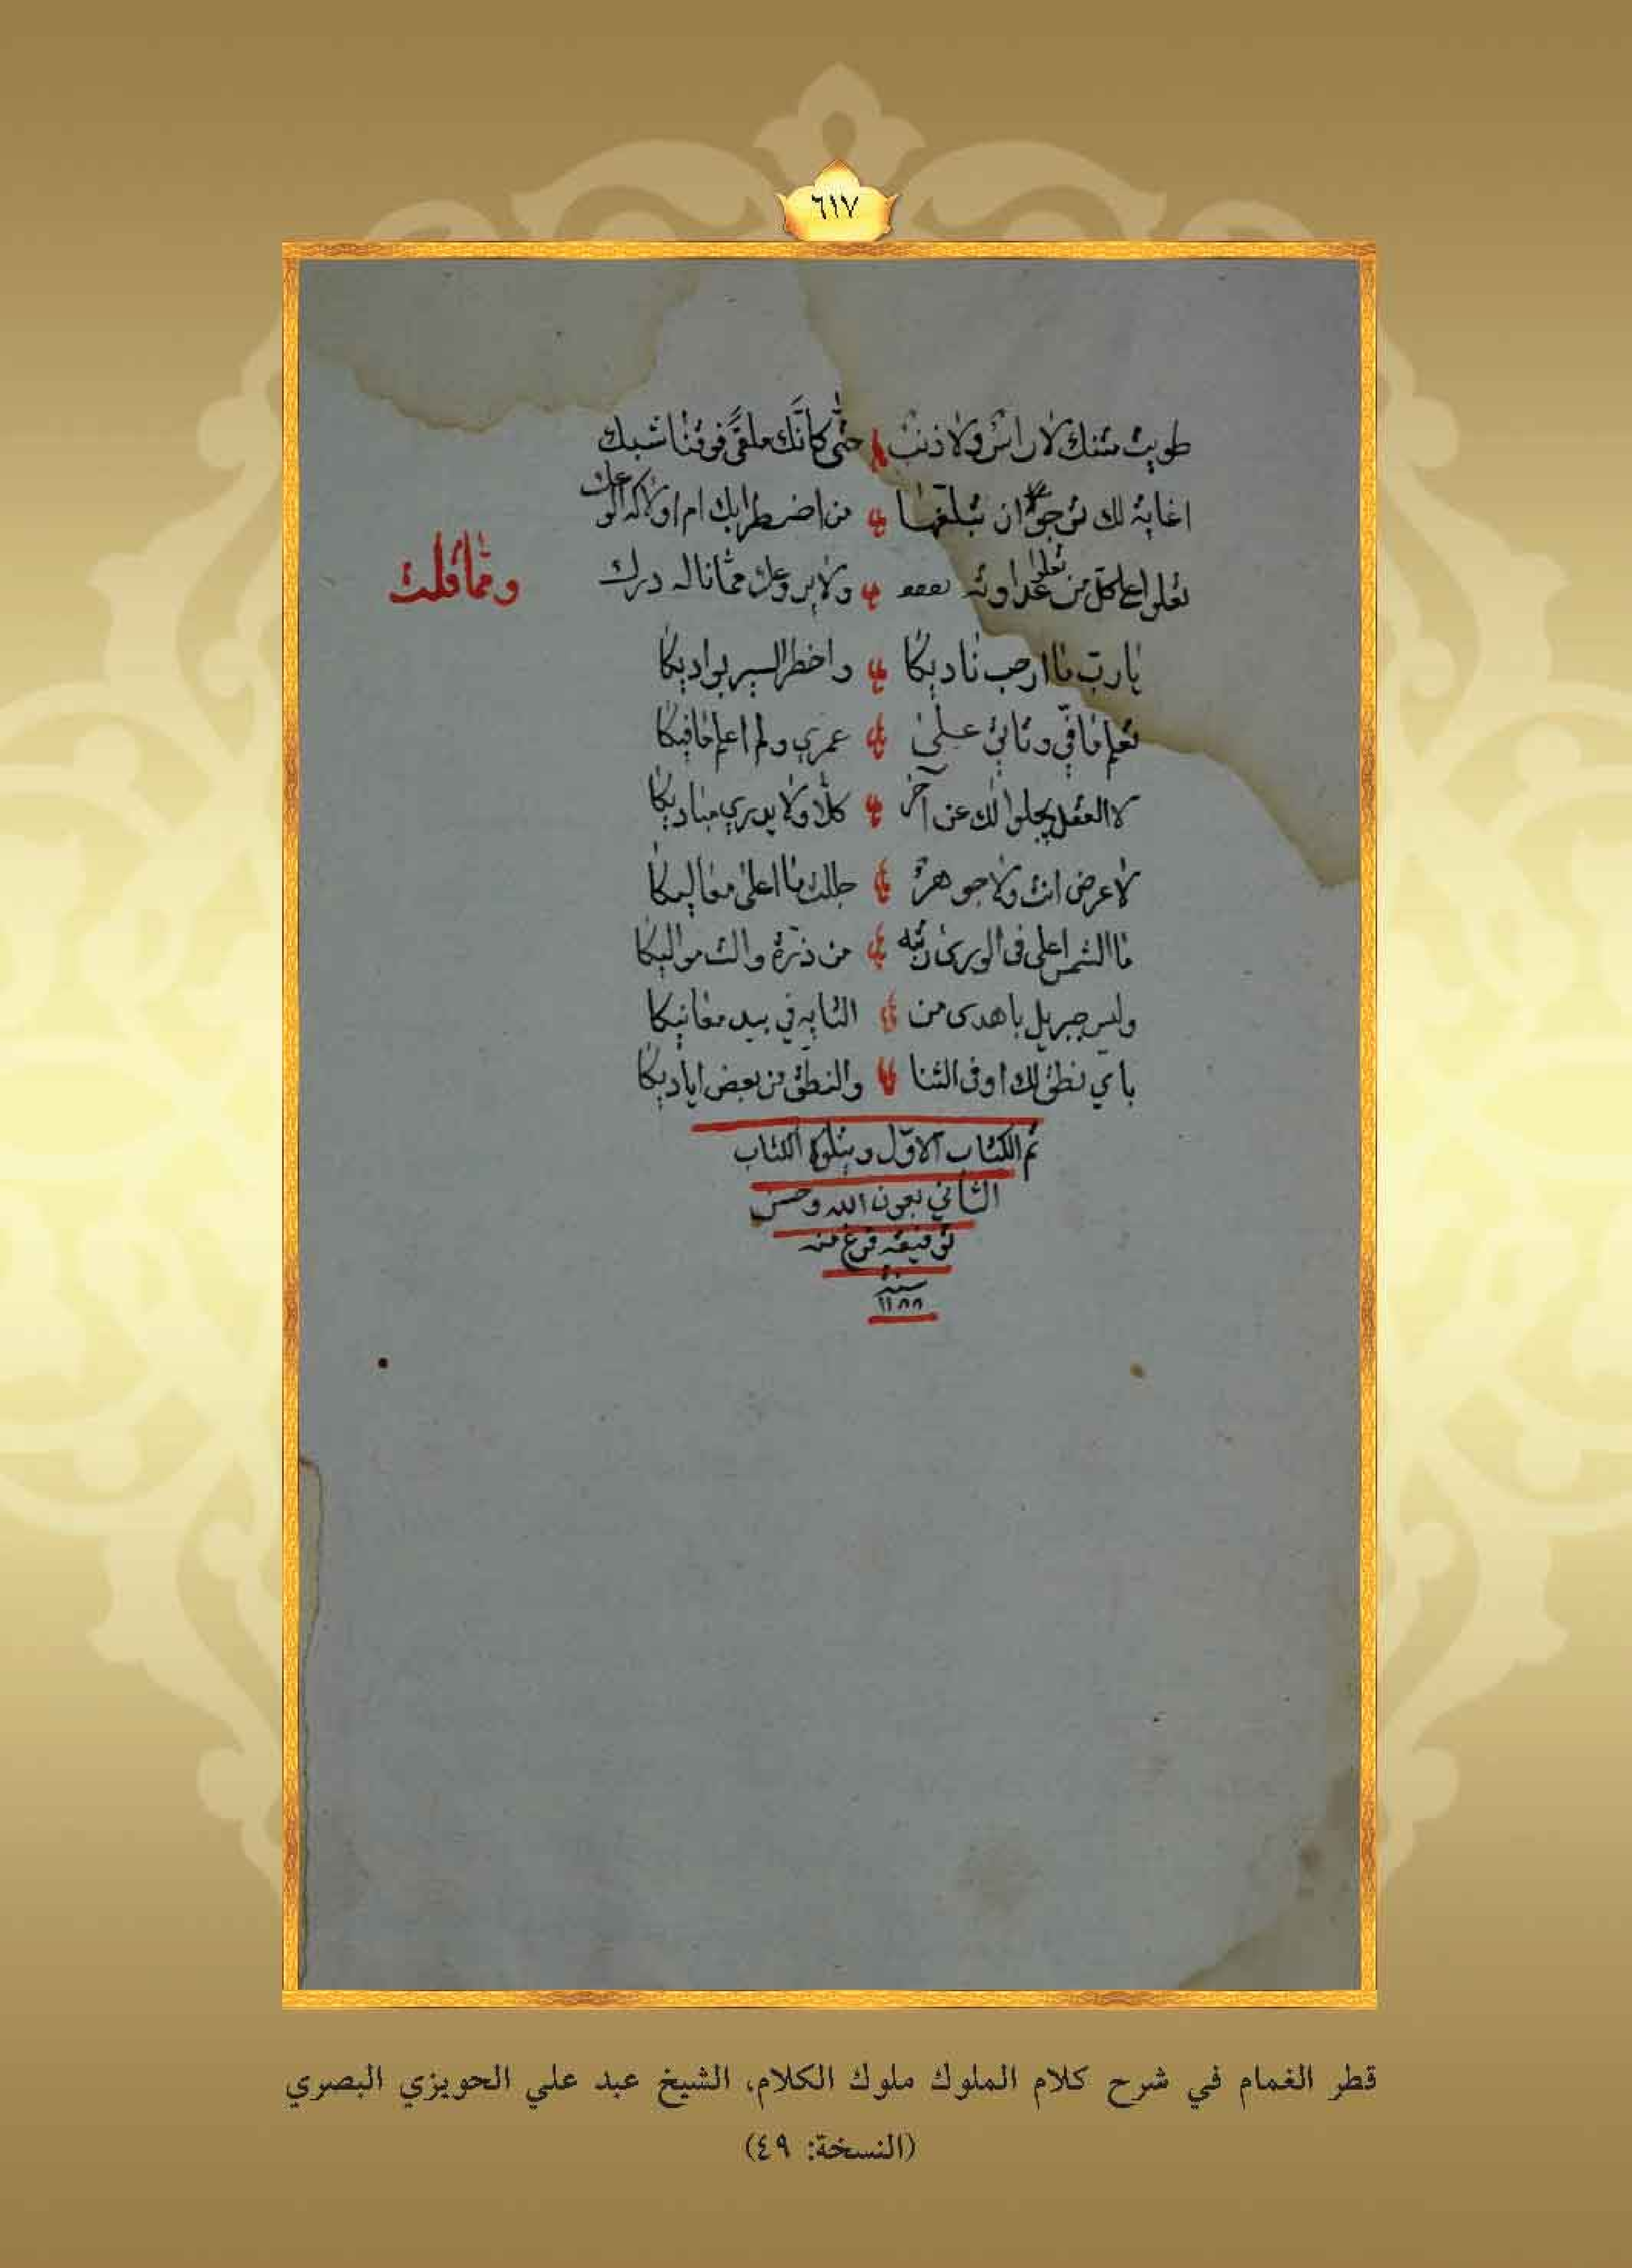 ٦١٧
طويت متنك لا راس ولا ذنب حتى كانك ملقى فوقنا شبك
اغاية لك ترجو ان تبلغها من اضطرابك ام اولا له
تعلوا على كل من ولا يروعك ممانا له درك
ومما قلت
يا رب ما ارحب ناديكا واخطر السير بواديكا
تعلم ما في وتاتي على عمري ولم اعلم خافيكا
لا العقل يجلوا لك عن آخر كلا ولا يدري مباديكا
لا عرض انت ولا جوهر جللت ما اعلى معاليكا
ما الشمس اعلى فى الورى رتبه من ذرة والت مواليكا
وليس جبريل باهدى من التايه في بيد مغانيكا
باي نطق لك اوفى الثنا والنطق من بعض اياديكا
تم الكتاب الاول ويتلوه الكتاب
الثاني بعون الله وحسن
توفيقه فرغ منه
سنة
١١٨٨
قطر الغمام في شرح كلام الملوك ملوك الكلام، الشيخ عبد علي الحويزي البصري
(النسخة: ٤٩)